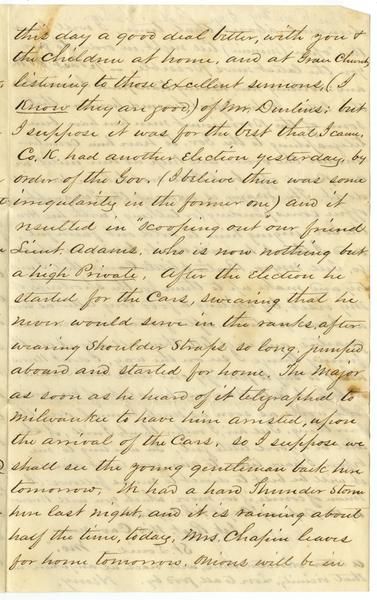 this day a good deal better, with you &
the children at home, and at Grace Church
listening to those Excellent sermons, (I
Know they are good,) of Mr. but
I suppose it was for the best that I came.
Co. K. had another Election yesterday, by
order of the Gov. (I believe there was some
irregularity in the former one) and it
resulted in "scooping out" our friend
Lieut. Adams, who is now nothing but
a high Private. After the Election he
started for the Cars, swearing that he
never would serve in the ranks after
wearing Shoulder Straps so long, jumped
aboard and started for home. The Major
as soon as he heard of it telegraphed to
Milwaukee to have him arrested, upon
the arrival of the Cars, so I suppose we
shall see the young gentleman back here
tomorrow. We had a hard Thunder Storm
here last night, and it is raining about
half the time, today. Mrs. Chapin leaves
for home tomorrow. will be in